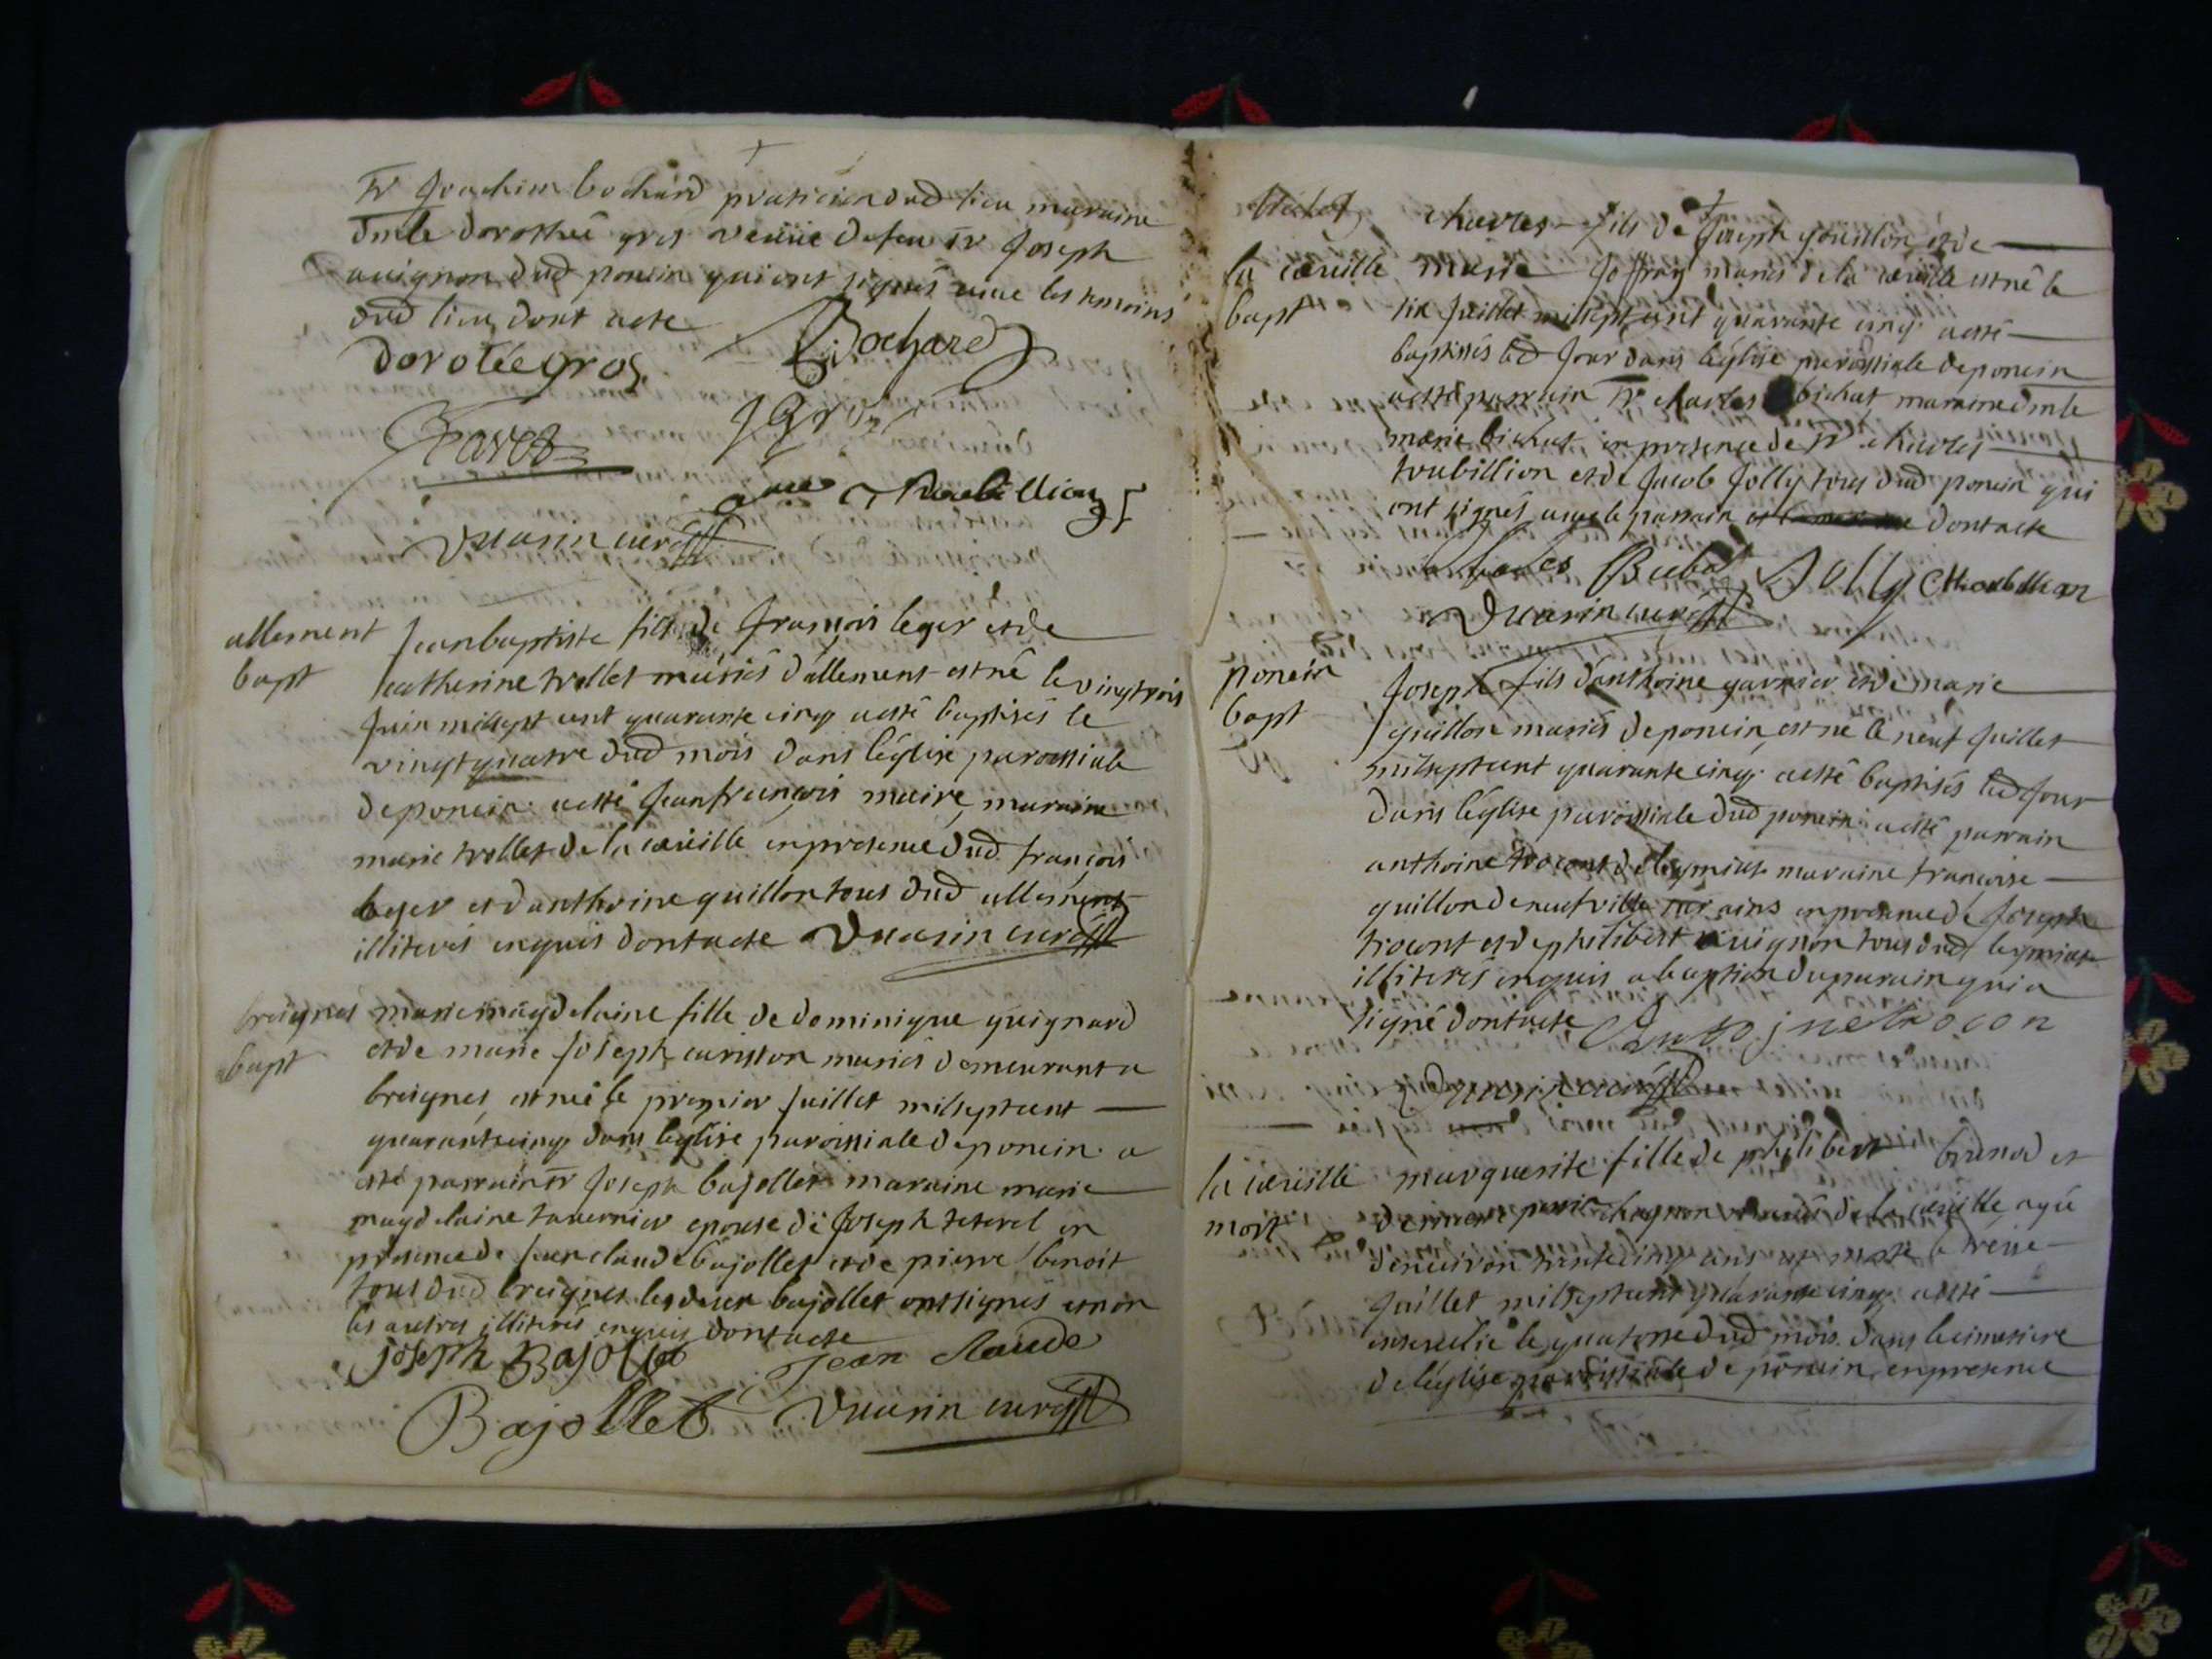 Sr Joachim bochard praticien dud lieu maraine
dmle dorothée gros veuüe defeu sr Joseph
auignon dud poncin qui ont signés avec les temoins
dud lieu dont acte
Bochard
dorotée gros
J gros
Savarin curé
allement
bapt
Jean baptiste fils de françois leger et de
catherine trollet mariés d'allement est né le vingt trois
Juin milsept cent quarante cinq a esté baptisés le
vingt quatre dud mois dans l'église paroissiale
de poncin a esté Jean françois maire, maraine
marie trollet de la cueille en presence dud françois
leger et d'anthoine guillon tous dud allement
illiterés enquis dont acte
breignes
bapt
marie magdelaine fille de dominique guignard
et de marie Joseph mariés demeurant a
breignes, est née le premier Juillet milsept cent
quarante cinq dans l'église paroissiale de poncin a
esté parrain sr Joseph bajollet maraine marie
magdelaine tavernier epouse de Joseph en
presence de Jean claude bajollet et de pierre benoit
tous dud breignes lesdeux bajollet ont signés et non
les autres illiterés enquis dont acte
joseph Bajollet Jean Claude
Bajollet
la cueille
bapt
charles fils de Joseph goüillon et de
marie Joffray mariés de la cueille est né le
six Juillet milsept cent quarante cinq a esté
baptisés led Jour dans l'église paroissiale de poncin
a esté parrain sr charles bichat maraine dmle
marie bichat en presence de sr charles
toubillion et de Jacob Jolly tous dud poncin qui
ont signés avec le parrain dont acte
Charles Jolly
poncin
bapt
Joseph fils d'anthoine garnier et de marie
guillon mariés de poncin, est né le neuf Juillet
milsept cent quarante cinq a esté baptisés led Jour
dans l'église paroissiale dud poncin a esté parrain
anthoine trocont de leymiat maraine françoise
guillon de neufville en presence de Joseph
trocont et de philibert auignon tous dud leymiat
illiterés enquis a l'exception du parain qui a
signé dont acte
la cueille
mort
marguerite fille de philibert et
mariés de la cueille, agée
d'environ trente cinq ans est morte le treize
Juillet milsept cent quarante cinq a esté
ensevelie le quatorze dud mois dans le cimetiere
de l'église paroissiale de poncin en presence